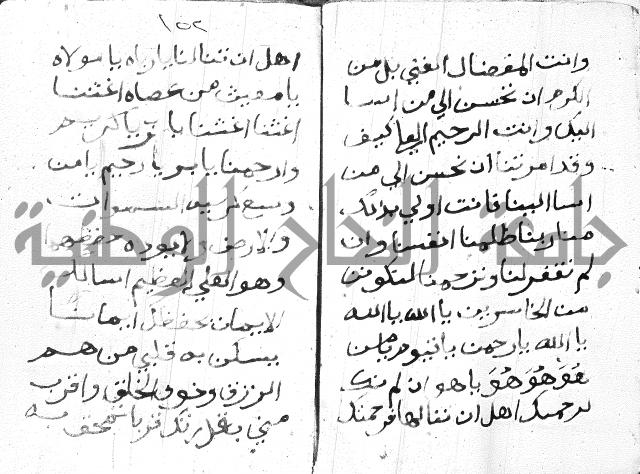 وانت المفضال الغني بل من
الكرم ان تحسن الي من اسا
اليك وانت الرحيم العلي كيف
وقد امرتنا ان نحسن الي من
اسا الينا فانت اولي بذلك
منا ربنا ظلمنا انفسنا وان
لم تغفر لنا وترحمنا لنكونن
من الخاسرين يا الله يا الله
يا الله يا رحمن يا قيوم يا من
هُوَ هُوَ هُوَ يا هو ان لم نكن
لرحمتك اهل ان ننالها فرحمتك
١٥٢
اهل ان تنالنا يا رباه يا مولاه
يا مغيث من عصاه اغثنا
اغثنا اغثنا يا رب يا كريم
وارحمنا يا بر يا رحيم يا من
وسع كرسيه السموات
والارض ولا يوده حفظهما
وهو العلي العظيم اسالك
الايمان بحفظك ايمانا
يسكن به قلبي من هم
الرزق وخوف الخلق واقرب
مني بقدرتك قربا تمحق به
جامعة النجاح الوطنية